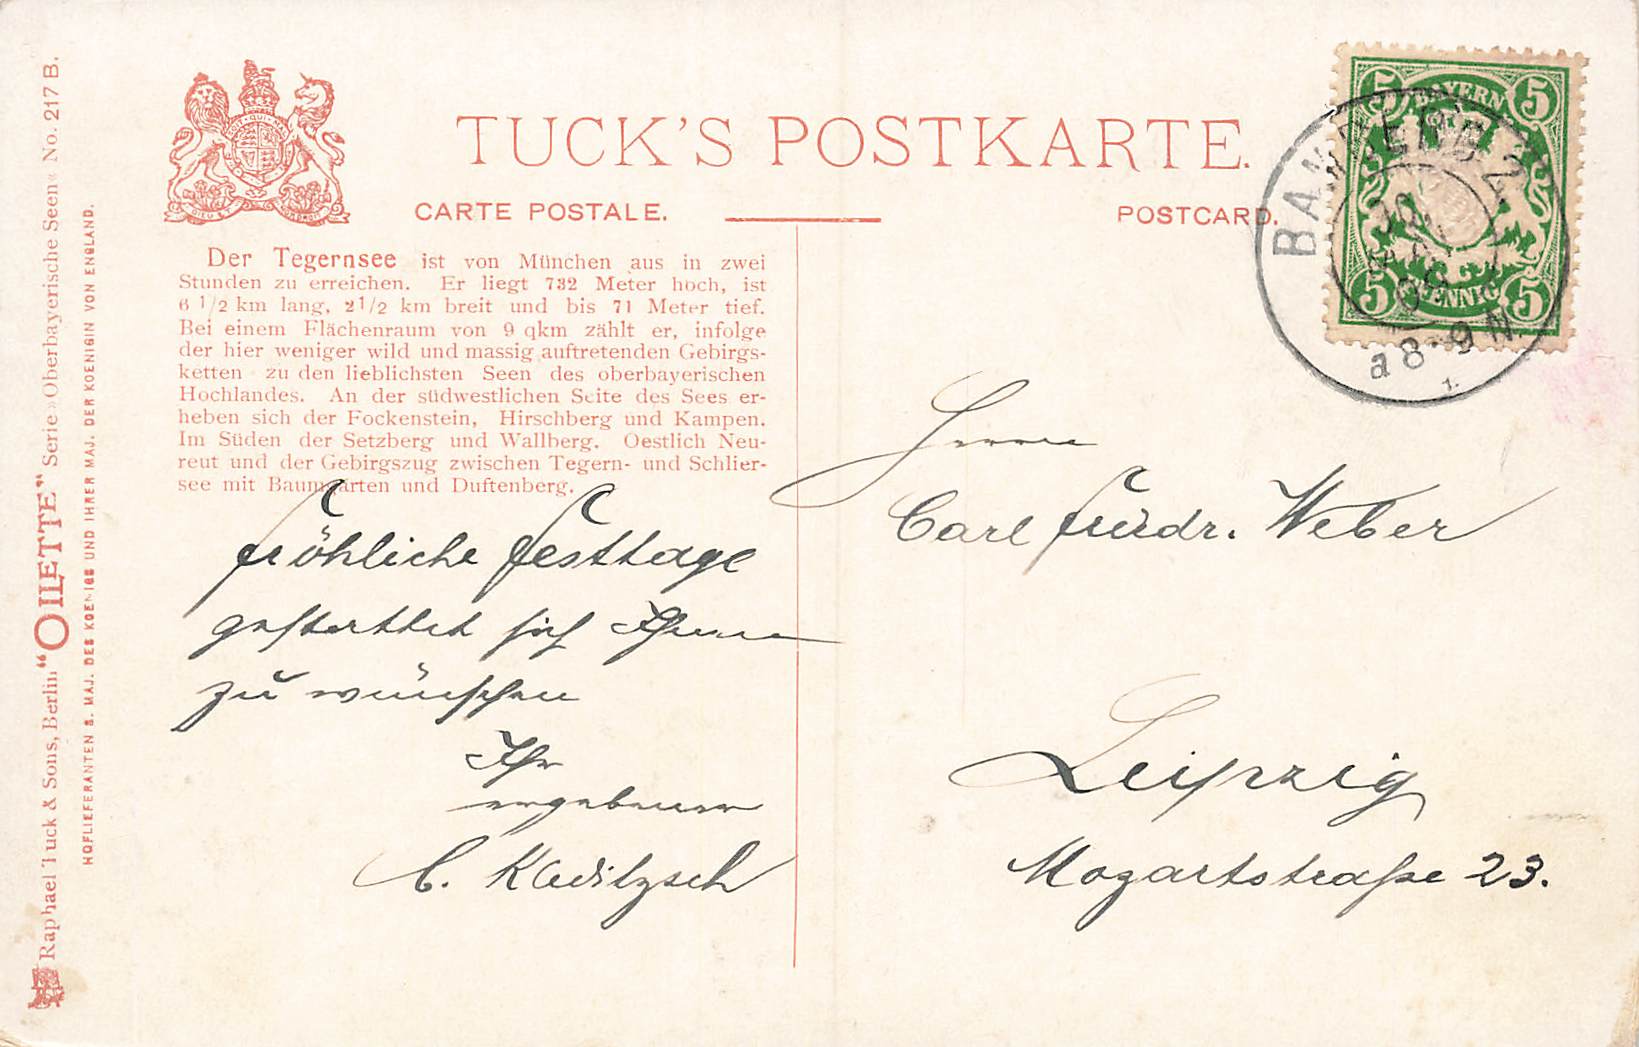 TUCK'S POSTKARTE.
CARTE POSTALE.
POSTCARD.
Der Tegernsee ist von München aus in zwei
Stunden zu erreichen. Er liegt 732 Meter hoch, ist
6 1/2 km lang, 2 1/2 km breit und bis 71 Meter tief.
Bei einem Flächenraum von 9 qkm zählt er, infolge
der hier weniger wild und massig auftretenden Gebirgs-
ketten zu den lieblichsten Seen des oberbayerischen
Hochlandes. An der südwestlichen Seite des Sees er-
heben sich der Fockenstein, Hirschberg und Kampen.
Im Süden der Setzberg und Wallberg. Oestlich Neu-
reut und der Gebirgszug zwischen Tegern- und Schlier-
see mit Baumgarten und Duftenberg.
Fröhliche Festtage
gestattet sich Ihnen
zu wünschen
Ihr
ergebener
C.
Herrn
Carl Friedr. Weber
Leipzig
Mozartstraße 23.
5 BAYERN 5
5 PFENNIG 5
BAMBERG 2
a 8-9 N
Raphael Tuck & Sons, Berlin "OILETTE" Serie »Oberbayerische Seen« No. 217 B.
HOFLIEFERANTEN S. MAJ. DES KOENIGS UND IHRER MAJ. DER KOENIGIN VON ENGLAND.